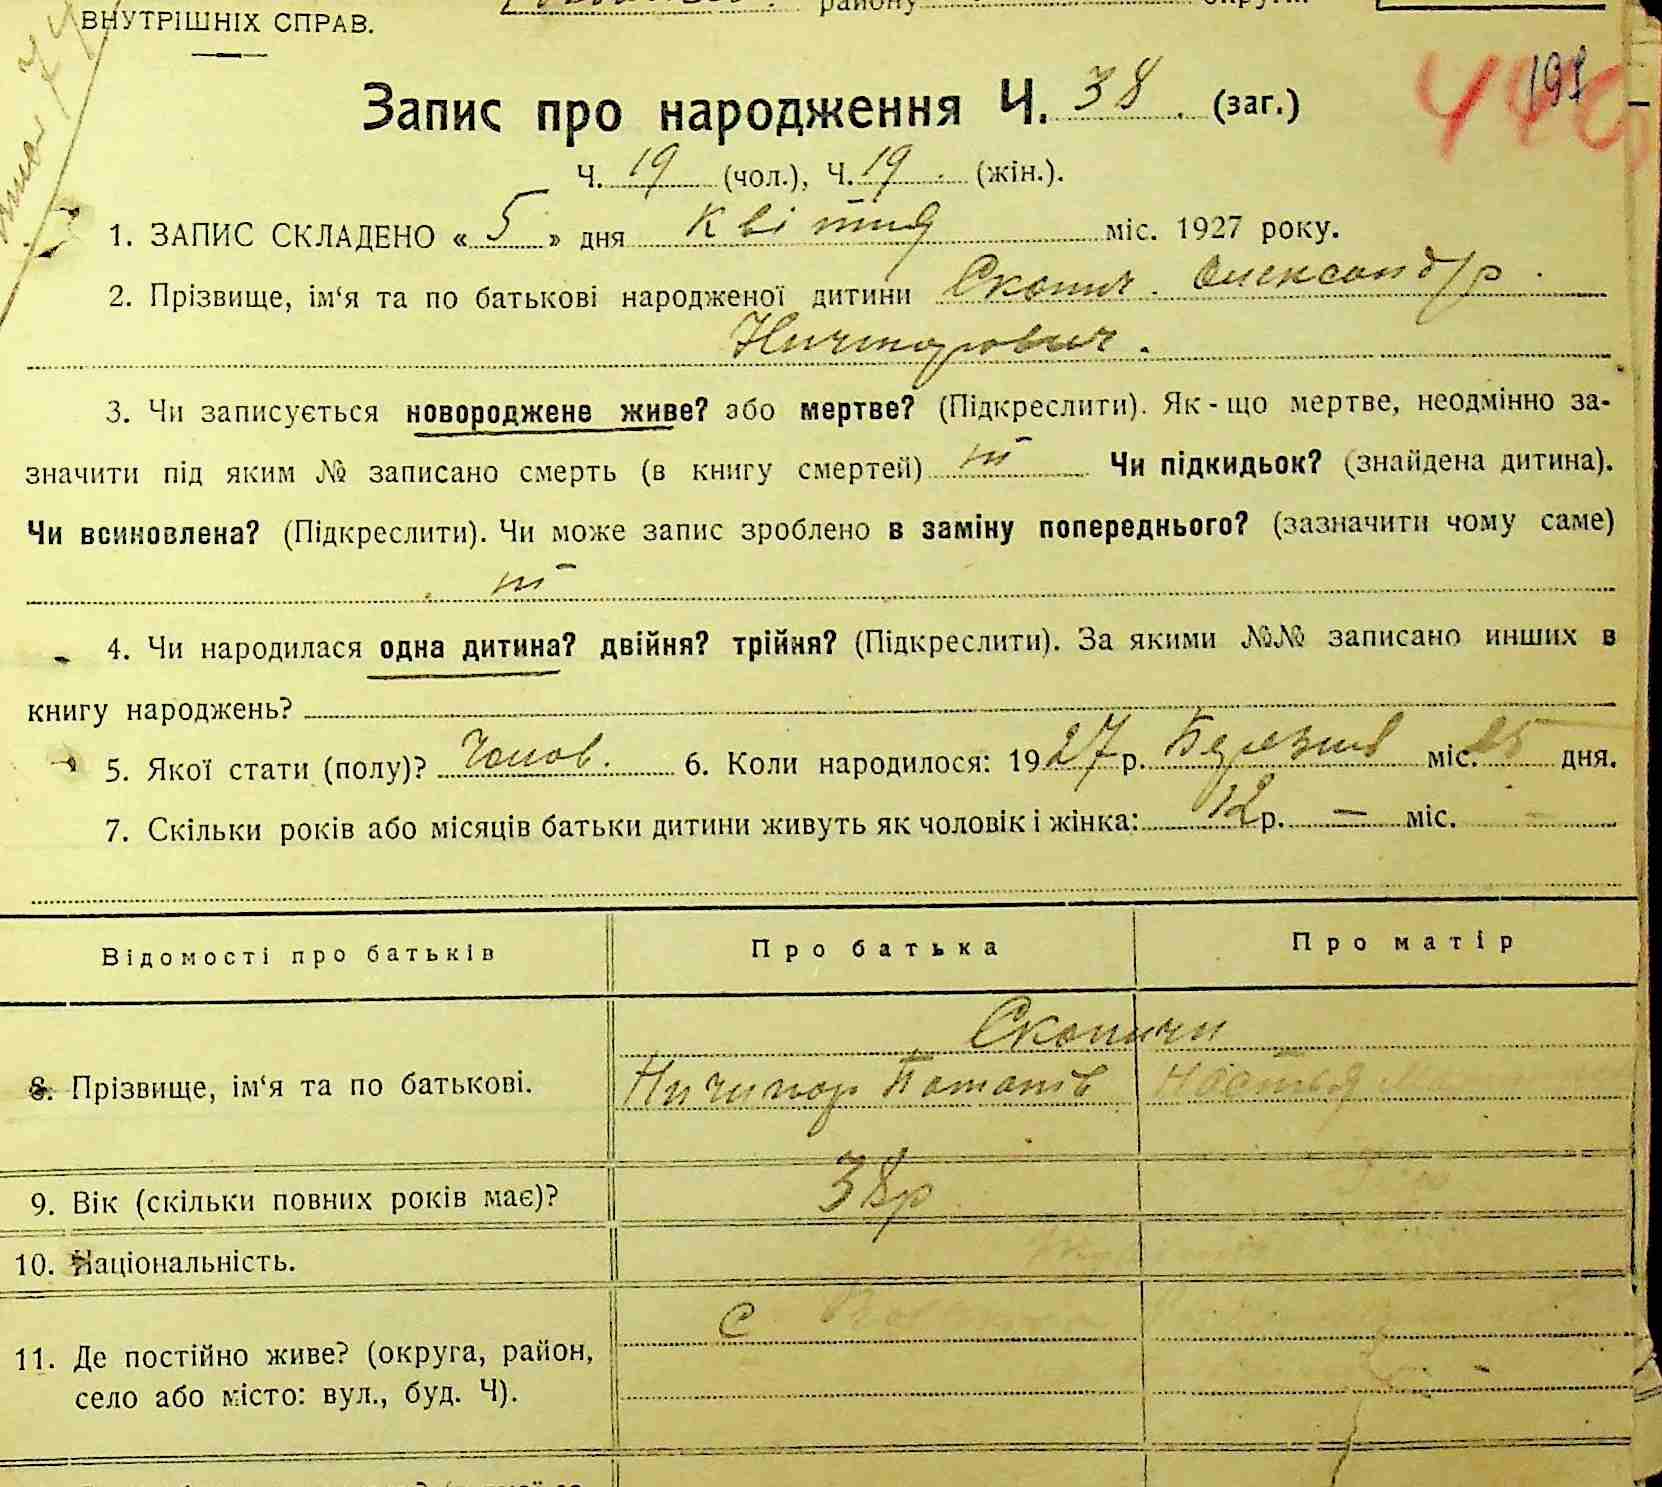 ВНУТРІШНІХ СПРАВ.
району
Запис про народження Ч. 38. (заг.)
191
Ч. 19 (чол.), Ч. 19. (жін.).
1. ЗАПИС СКЛАДЕНО « 5 » дня квітня міс. 1927 року.
2. Прізвище, ім‘я та по батькові народженої дитини Скопич. Олександр.
Ничипорович.
3. Чи записується новороджене живе? або мертве? (Підкреслити). Як-що мертве, неодмінно за-
значити під яким № записано смерть (в книгу смертей) Чи підкидьок? (знайдена дитина).
Чи всиновлена? (Підкреслити). Чи може запис зроблено в заміну попереднього? (зазначити чому саме)
4. Чи народилася одна дитина? двійня? трійня? (Підкреслити). За якими №№ записано инших в
книгу народжень?
5. Якої стати (полу)? Чолов. 6. Коли народилося: 1927 р. Березня міс. 25 дня.
7. Скільки років або місяців батьки дитини живуть як чоловік і жінка: 12 р. — міс. —
Відомості про батьків Про батька Про матір
Скопичи
8. Прізвище, ім‘я та по батькові. Ничипор Потапів Настя
9. Вік (скільки повних років має)? 38 р
10. Національність.
с
11. Де постійно живе? (округа, район,
село або місто: вул., буд. Ч).